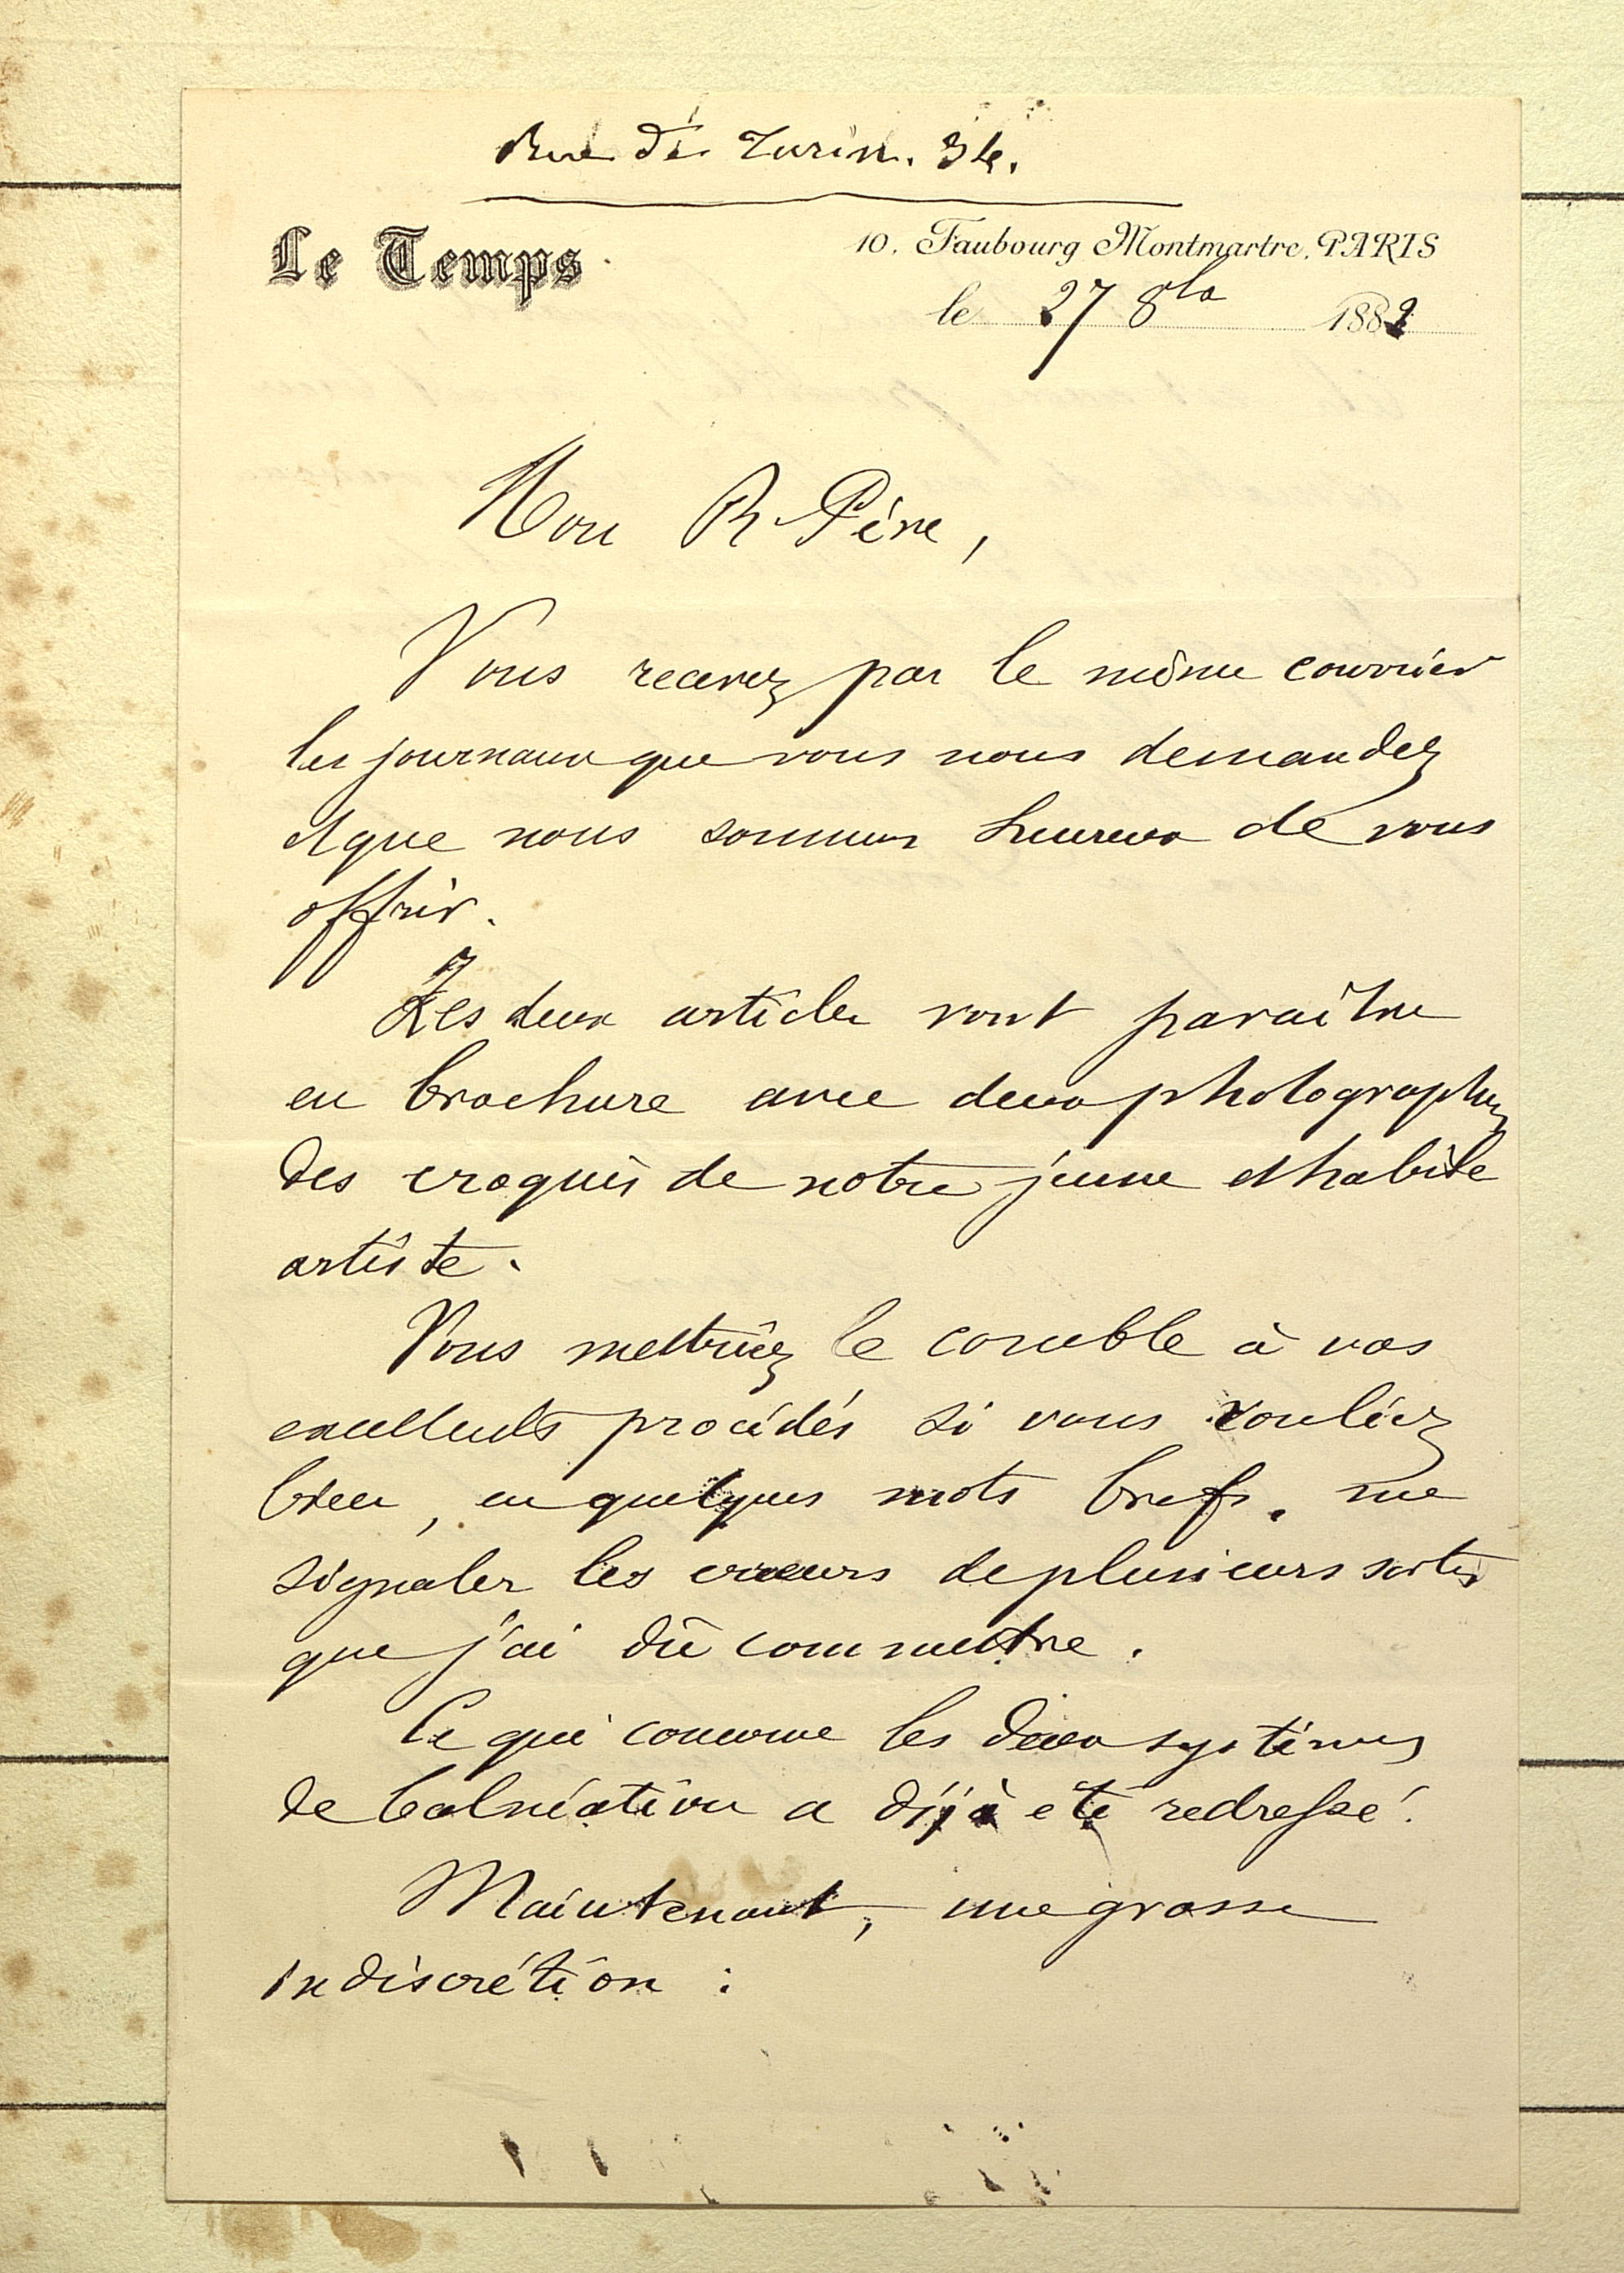 Rue de Turin. 34.
Le Temps
10. Faubourg Montmartre. PARIS
le 27 8bre 1882
Mon R Père,
Vous recevez par le même courrier
les journaux que vous nous demandez
et que nous sommes heureux de vous
offrir.
Les deux articles vont paraître
en brochure avec deux photographies
des croquis de notre jeune et habile
artiste.
Vous mettriez le comble à vos
excellents procédés si vous vouliez
bien, en quelques mots brefs, me
signaler les erreurs de plusieurs sortes
que j'ai dû commettre.
Ce qui concerne les deux systèmes
de balnéation a déjà été redressé.
Maintenant, une grosse
indiscrétion :